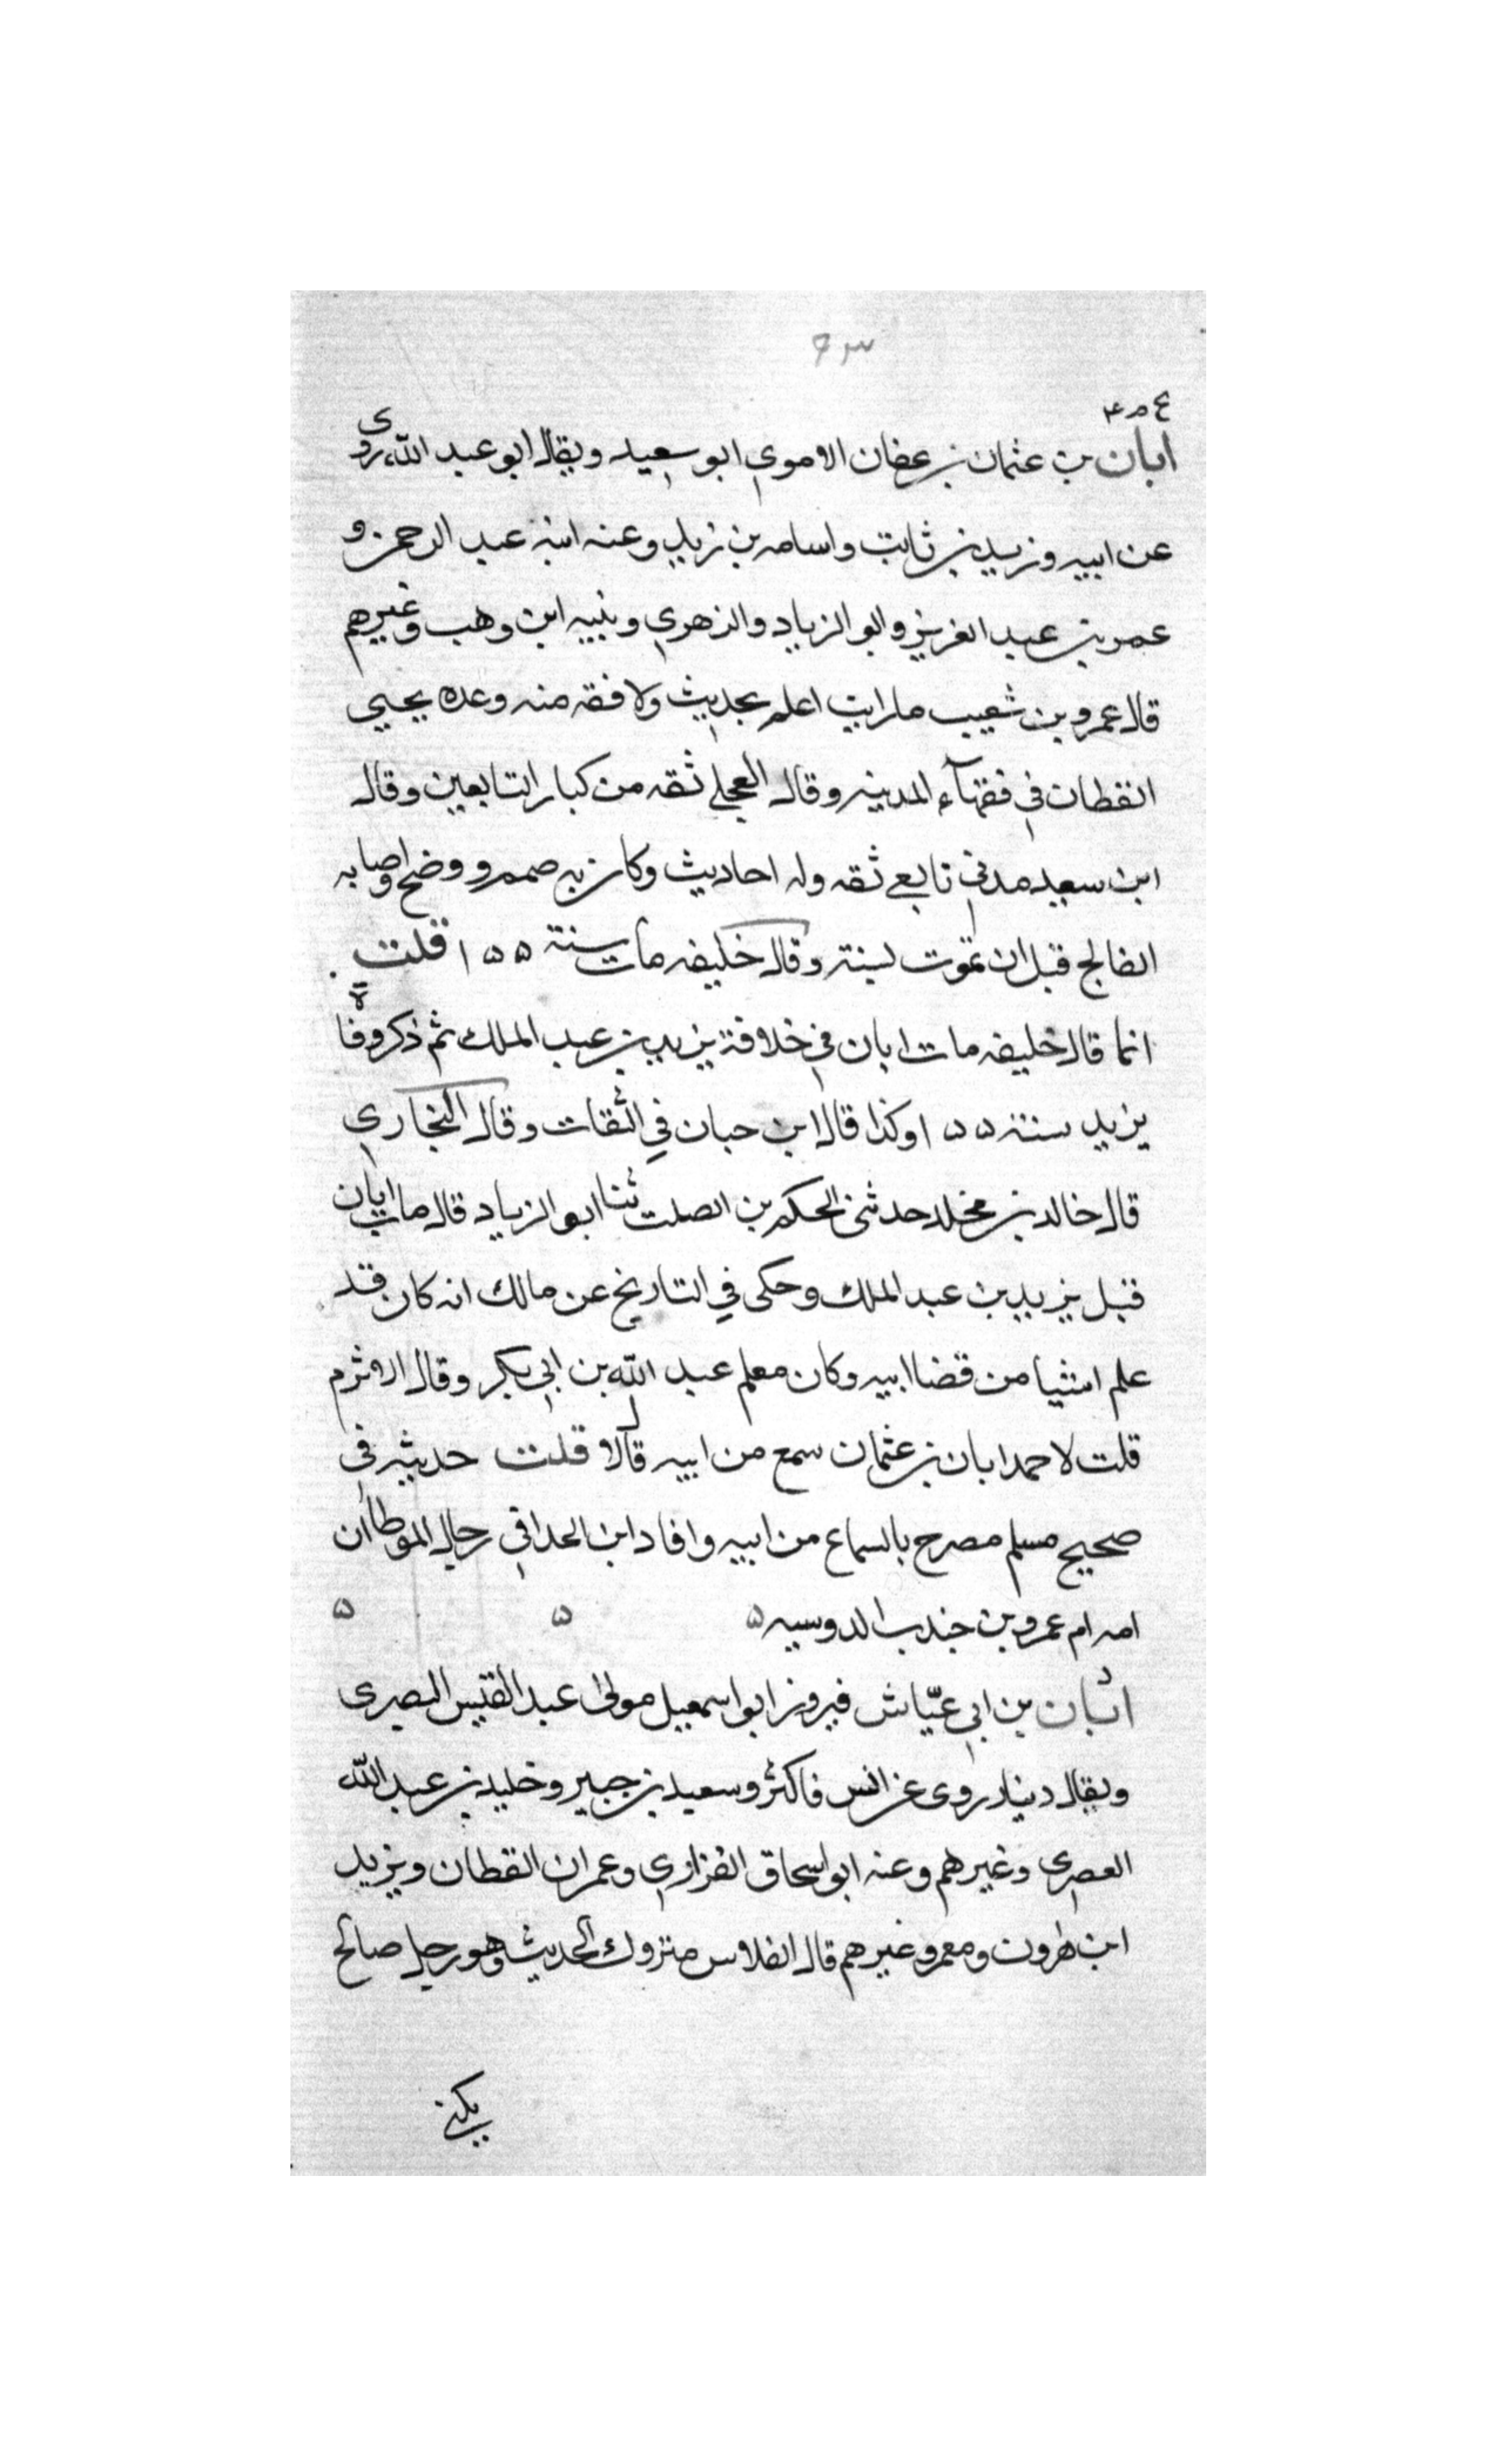 ٦٣
بخ م ٤
ابان بن عثمان بن عفان الاموي ابو سعيد ويقال ابو عبد الله روى
عن ابيه وزيد بن ثابت واسامه بن زيد وعنه ابنه عبد الرحمن و
عمر بن عبد العزيز وابو الزياد والزهري ونبيه ابن وهب وغيرهم
قال عمرو بن شعيب ما رايت اعلم بحديث ولا فقه منه وعده يحيى
القطان في فقهآء المدينه وقال العجلي ثقه من كبار التابعين وقال
ابن سعيد مدني تابعي ثقه وله احاديث وكان به صمم ووضح واصابه
الفالج قبل ان يموت بسنة وقال خليفه مات سنة ١٥٥ قلت
انما قال خليفه مات ابان في خلافة يزيد بن عبد الملك ثم ذكر وفاة
يزيد سنة ١٥٥ وكذا قال ابن حبان في الثقات وقال البخاري
قال خالد بن مخلد حدثني الحكم بن الصلت ثنا ابو الزياد قال مات ابان
قبل يزيد بن عبد الملك وحكى في التاريخ عن مالك انه كان قد
علم اشيا من قضا ابيه وكان معلم عبد الله بن ابي بكر وقال الاثرم
قلت لاحمد ابان بن عثمان سمع من ابيه قال لا قلت حديثه في
صحيح مسلم مصرح بالسماع من ابيه وافاد ابن الحذا في رجال الموطا ان
امه ام عمرو بن جندب الدوسيه ٥ ٥ ٥
ابان بن ابي عيّاش فيروز ابو اسمعيل مولى عبد القيس البصرى
ويقال دينار روى عن انس فاكثر وسعيد بن جبير وخليد بن عبد الله
العصرى وغيرهم وعنه ابو اسحاق الفزاري وعمران القطان ويزيد
ابن هارون ومعمر وغيرهم قال الفلاس متروك الحديث وهو رجل صالح
يكنى